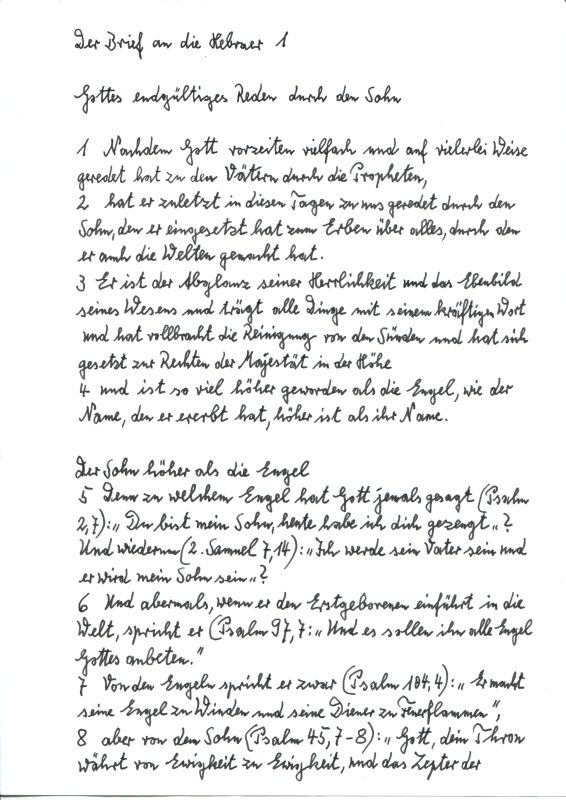 Der Brief an die Hebräer 1
Gottes endgültiges Reden durch den Sohn
1 Nachdem Gott vorzeiten vielfach und auf vielerlei Weise
geredet hat zu den Vätern durch die Propheten,
2 hat er zuletzt in diesen Tagen zu uns geredet durch den
Sohn, den er eingesetzt hat zum Erben über alles, durch den
er auch die Welten gemacht hat.
3 Er ist der Abglanz seiner Herrlichkeit und das Ebenbild
seines Wesens und trägt alle Dinge mit seinem kräftigen Wort
und hat vollbracht die Reinigung von den Sünden und hat sich
gesetzt zur Rechten der Majestät in der Höhe
4 und ist so viel höher geworden als die Engel, wie der
Name, den er ererbt hat, höher ist als ihr Name.
Der Sohn höher als die Engel
5 Denn zu welchem Engel hat Gott jemals gesagt (Psalm
2,7): „Du bist mein Sohn, heute habe ich dich gezeugt„?
Und wiederum (2. Samuel 7,14): „Ich werde sein Vater sein und
er wird mein Sohn sein„?
6 Und abermals, wenn er den Erstgeborenen einführt in die
Welt, spricht er (Psalm 97,7: „Und es sollen ihn alle Engel
Gottes anbeten."
7 Von den Engeln spricht er zwar (Psalm 104,4): „Er macht
seine Engel zu Winden und seine Diener zu Feuerflammen",
8 aber von dem Sohn (Psalm 45,7-8): „Gott, dein Thron
währt von Ewigkeit zu Ewigkeit, und das Zepter der